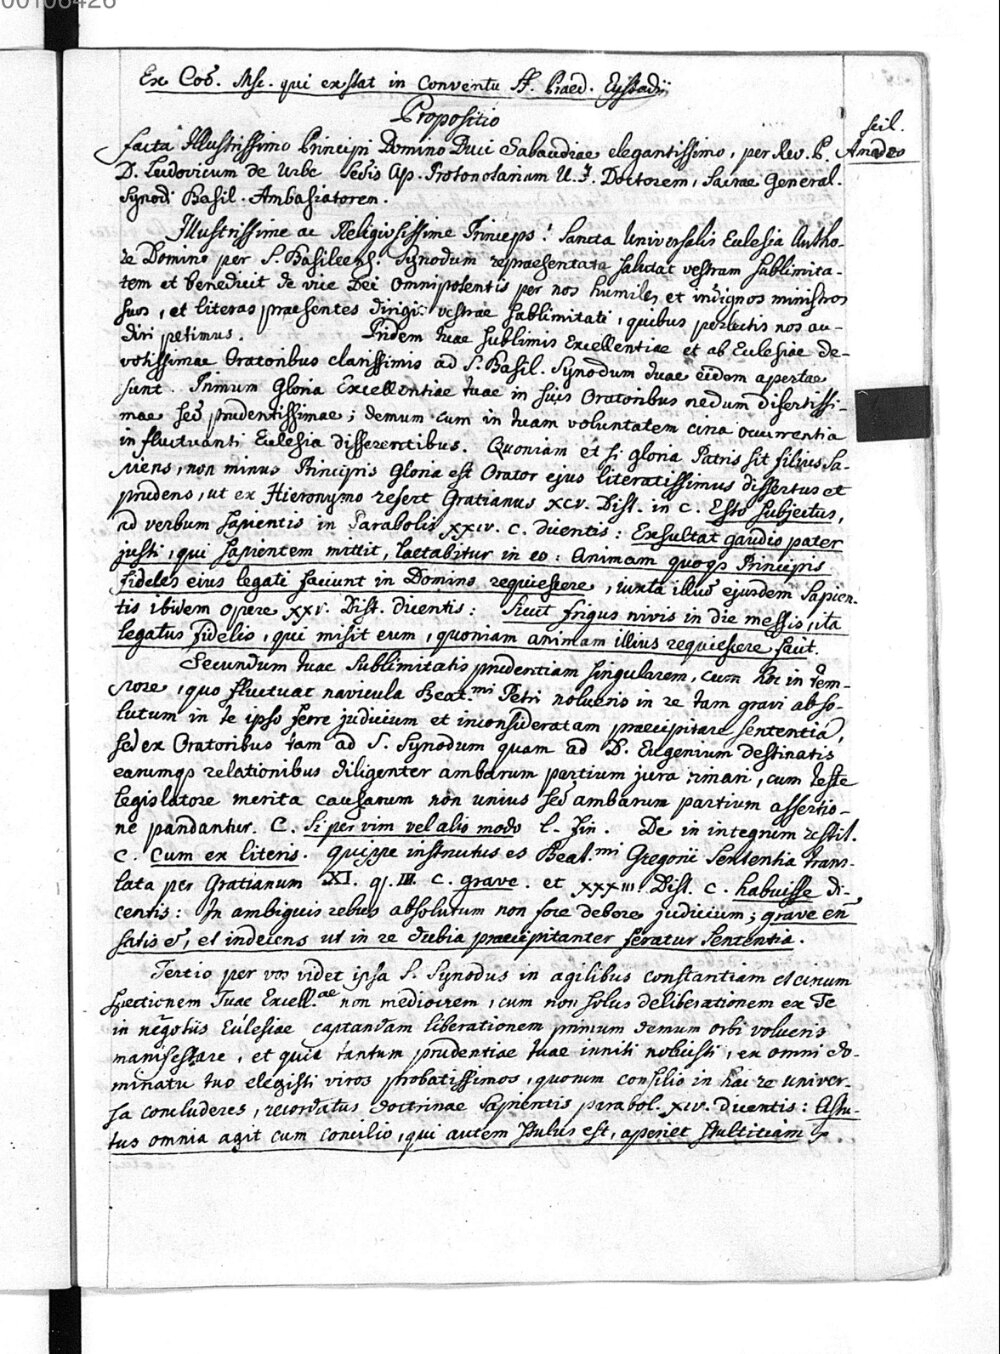 00106426
Ex Cod. Msc. qui exstat in Conventu ff. Praed. Eystadii
Propositio
scil.
facta Illustrissimo Principi Domino Duci Sabaudiae elegantissimo, per Rev. P. Amadeo
D. Ludovicum de Urbe Sedis Ap. Protonotarium U. J. Doctorem, Sacrae General.
Synodi Basil. Ambasiatorem.
Illustrissime ac Religiosissime Princeps! Sancta Universalis Ecclesia Autho-
re Domino per S. Basileens. Synodum repraesentata salutat vestram sublimita-
tem et benedicit de vice Dei omnipotentis per nos humiles et indignos ministros
suos, et literas praesentes dirigit vestrae sublimitati, quibus perlectis nos au-
diri petimus. Pridem tuae sublimis Excellentiae et ab Ecclesiae de-
votissimae Oratoribus clarissimis ad S. Basil. Synodum duae eidem apertae
sunt. Primum Gloria Excellentiae tuae in suis Oratoribus nedum disertissi-
mae sed prudentissimae; demum cum in tuam voluntatem circa occurrentia
in fluctuanti Ecclesia differentibus. Quoniam etsi gloria Patris sit filius sa-
piens, non minus Principis gloria est Orator ejus literatissimus dissertus et
prudens, ut ex Hieronymo refert Gratianus XCV. Dist. in c. Esto subjectus,
ad verbum sapientis in Parabolis XXIV. c. dicentis: Exsultat gaudio pater
justi, qui sapientem mittit, laetabitur in eo: Animam quoqs Principis
fideles eius legati faciunt in Domino requiescere, iuxta illud ejusdem Sapien-
tis ibidem opere XXV. Dist. dicentis: Sicut frigus nivis in die messis, ita
legatus fidelis, qui misit eum, quoniam animam illius requiescere facit.
Secundum tuae sublimitatis prudentiam singularem, cum hoc in tem-
pore, quo fluctuat navicula Beat.mi Petri nolueris in re tam gravi abso-
lutum in te ipso ferre judicium et inconsideratam praecipitare sententiã,
sed ex Oratoribus tam ad S. Synodum quam ad D. Eugenium destinatis
earumqs relationibus diligenter ambarum partium jura rimari, cum teste
legislatore merita causarum non unius sed ambarum partium assertio-
ne pandantur. C. Si per vim vel alio modo l. fin. De in integrum restit.
c. cum ex literis. Quippe instructus es Beat.mi Gregorii Sententia trans-
lata per Gratianum XI. q. III. c. grave. et XXXIII. Dist. c. habuisse di-
centis: In ambiguis rebus absolutum non fore debere judicium; grave en̄
satis ē, et indecens ut in re dubia praecipitanter feratur Sententia.
Tertio per vos videt ipsa S. Synodus in agilibus constantiam et circum
spectionem Tuae Excell.ae non mediocrem, cum non solus deliberationem ex Te
in negotiis Ecclesiae captandam liberationem primum demum orbi volueris
manifestare, et quia tantum prudentiae tuae inniti noluisti, ex omni do-
minatu tuo elegisti viros probatissimos, quorum consilio in hac re univer-
sa concluderes, recordatus doctrinae Sapientis parabol. XIV. dicentis: Astu-
tus omnia agit cum concilio, qui autem stultus est, aperiet stultitiam.